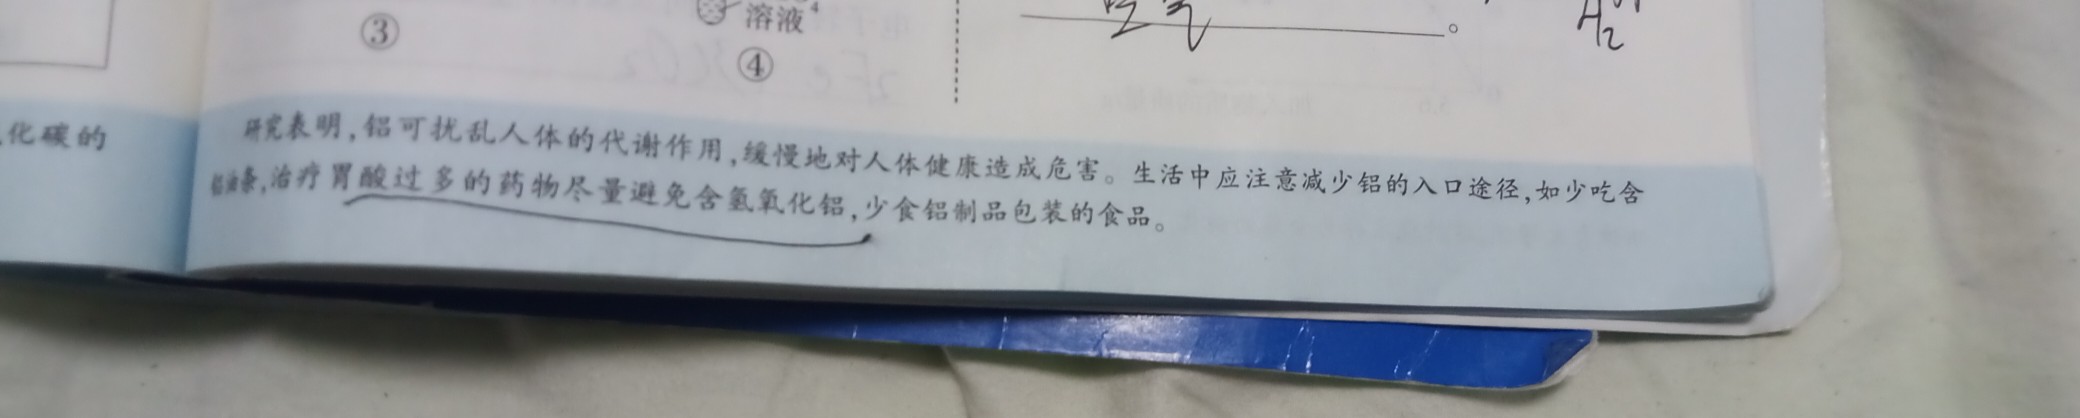 溶液
③
④
吃气
。
化碳的
研究表明,铝可扰乱人体的代谢作用,缓慢地对人体健康造成危害。生活中应注意减少铝的入口途径,如少吃含
铝油条,治疗胃酸过多的药物尽量避免含氢氧化铝,少食铝制品包装的食品。